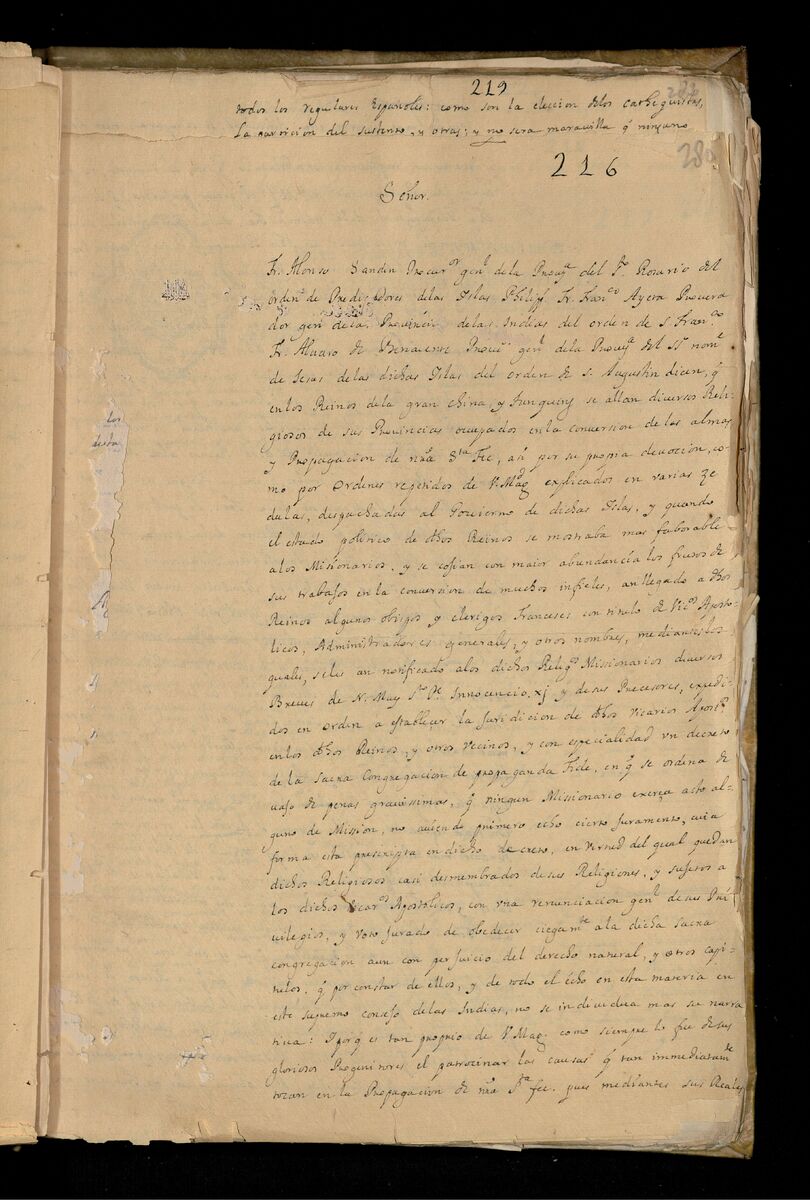 219
todos los regulares Españoles: como son la eleccion delos cathequistas,
La particion del sustento, y otras; y no sera maravilla q̃ ninguno
280
216
Señor.
Fr. Alonso Sandin Procur.or gen.l de la Prou.a del S.o Rosario del
Orden de Predicadores delas Islas Philipp. Fr. Fran.co Ayera Procura
dor gen.l dela Prouincia delas Indias del orden de S. Fran.co
Fr. Aluaro de Benauente Procu.r gen.l dela Prou.a del SS. nom.e
de Jesus delas dichas Islas del orden de S. Augustin dicen, q̃
enlos Reinos dela gran China, y Tunquin, se allan diuersos Reli-
giosos de sus Prouincias ocupados enla conuersion de las almas
y Propagacion de nr̃a S.ta Fee, asi por su propria deuocion, co-
mo por Ordenes repetidos de V. Mag.d explicados en varias ze
dulas, despachadas al Gouierno de dichas Islas, y quando
el estado politico de dhos Reinos se mostraba mas fauorable
alos Misionarios, y se cojian con maior abundancia los frutos de
sus trabajos enla conuersion de muchos infieles, an llegado a dhos
Reinos algunos obispos y clerigos Franceses con titulo de Vic.os Aposto-
licos, Administradores generales, y otros nombres, mediantes los
quales, seles an notificado alos dichos Relig.os Missionarios diuersos
Breues de N. Muy S.to P.e Innocencio. xj y de sus Precesores, expedi-
dos en orden a establecer la Juridicion de dhos Vicarios Apost.os
enlos dhos Reinos, y otros vecinos, y con especialidad vn decreto
de la Sacra Congregacion de propaganda Fide, en q̃ se ordena de
uajo de penas grauissimas, q̃ ningun Missionario exerça acto al-
guno de Mission, no auiendo primero echo cierto Juramento, cuia
forma esta prescripta en dicho decreto, en virtud del qual quedan
dichos Religiosos casi desmembrados de sus Religiones, y sujetos a
los dichos Vicar.os Apostolicos, con vna renunciacion gen.l de sus Pri
uilegios, y voto jurado de obedecer ciegam.te ala dicha sacra
congregacion aun con perjuicio del derecho natural, y otros capi-
tulos, q̃ por constar de ellos, y de todo el echo en esta materia en
este supremo consejo delas Indias, no se indiuidua mas su narra
tiua: I porq̃ es tan proprio de V. Mag. como siempre lo fue de sus
gloriosos Progenitores el patrocinar las causas q̃ tan immediatam.te
tocan en la Propagacion de nr̃a S.ta fee. pues mediantes sus Reales